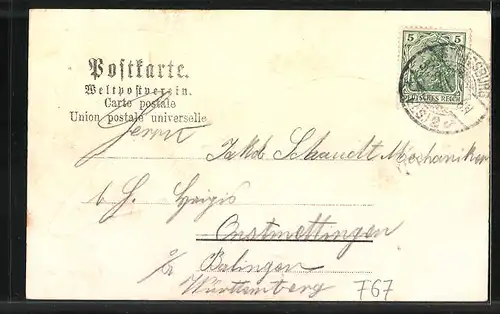 Postkarte.
Weltpostverein.
Carte postale
Union postale universelle
5 5
DEUTSCHES REICH
Herrn
Jakob Schaudt Mechaniker
b. H.
Onstmettingen
Balingen
Württemberg
767